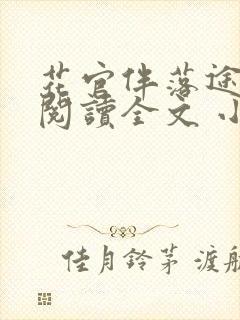 花官伴落途
閱讀全文 小
佳月鈴茅 渡航